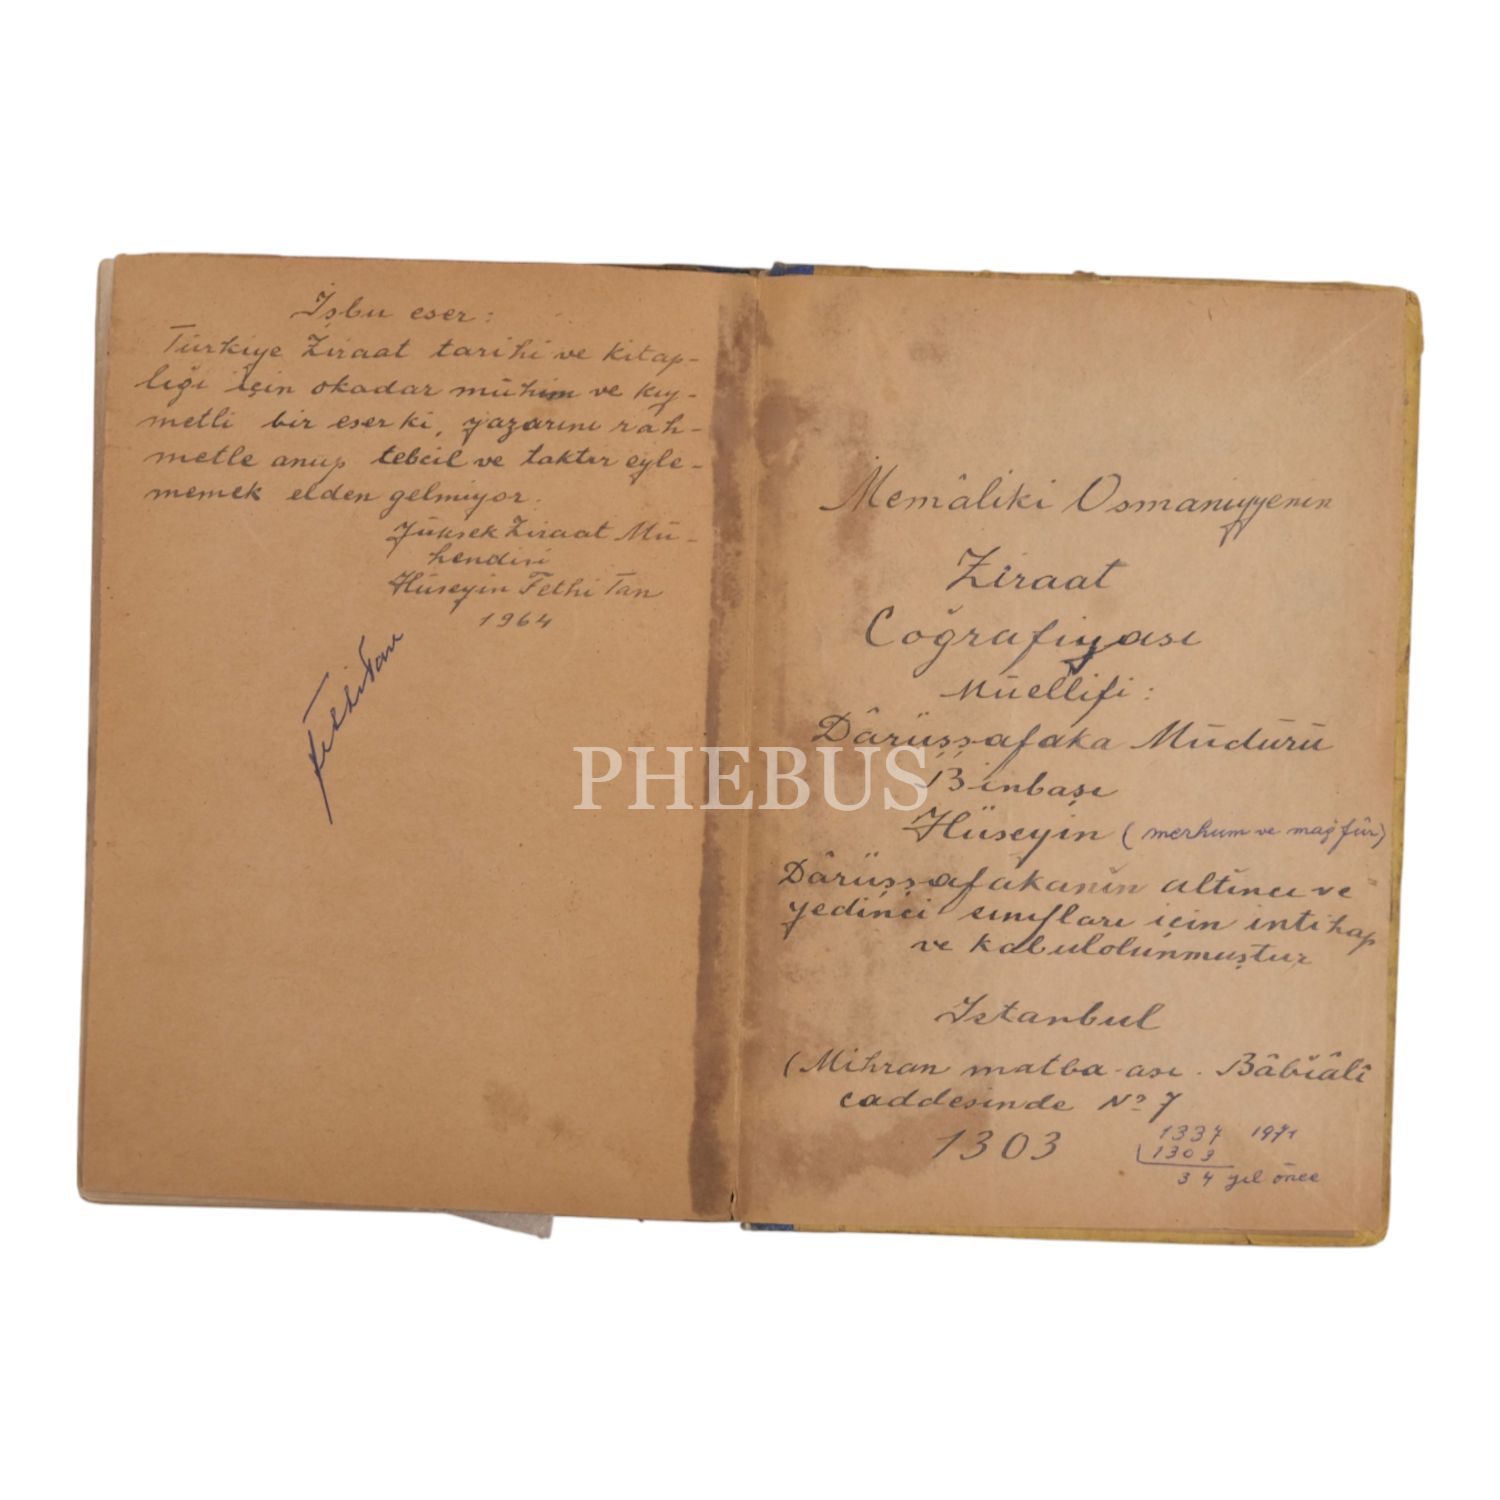 İşbu eser:
Türkiye Ziraat tarihi ve kitap-
lığı için okadar mühim ve kıy-
metli bir eser ki, yazarını rah-
metle anup tebcil ve taktir eyle-
memek elden gelmiyor.
Yüksek Ziraat Mü-
hendisi
Hüseyin Fethi Tan
1964
Fethi Tan
Memâliki Osmaniyyenin
Ziraat
Coğrafiyası
Müellifi:
Dârüşşafaka Müdürü
Binbaşı
Hüseyin (merhum ve mağfûr)
Dârüşşafakanın altıncı ve
yedinci sınıfları için intihap
ve kabulolunmuştur
Istanbul
(Mihran matba-ası. Bâbıâlî
caddesinde No 7
1303
1337 1971
1303
34 yıl önce
PHEBUS